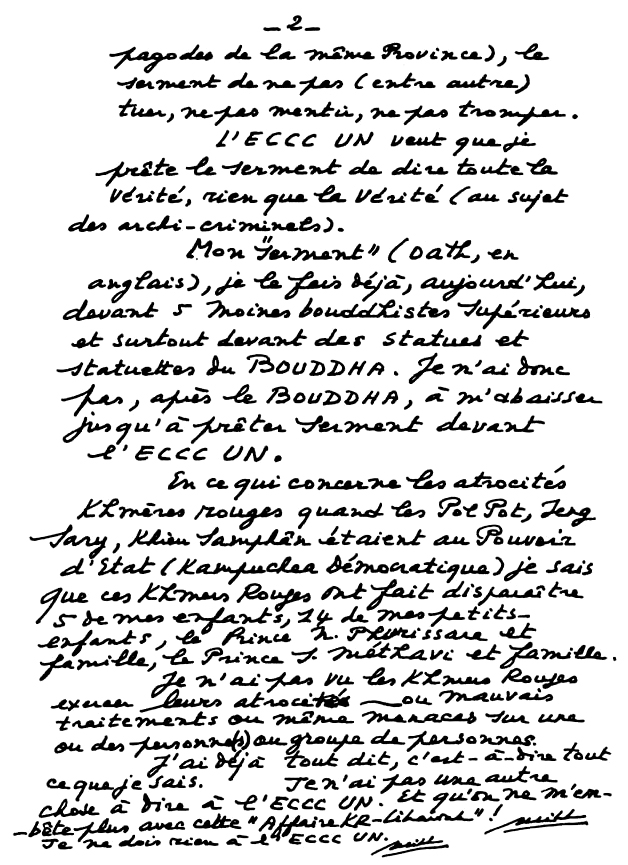 _2_
pagodes de la même Province), le
serment de ne pas (entre autre)
tuer, ne pas mentir, ne pas tromper.
L'ECCC UN veut que je
prête le serment de dire toute la
vérité, rien que la vérité (au sujet
des archi-criminels).
Mon "serment" (Oath, en
anglais), je le fais déjà, aujourd'hui,
devant 5 moines bouddhistes supérieurs
et surtout devant des statues et
statuettes du BOUDDHA. Je n'ai donc
pas, après le BOUDDHA, à m'abaisser
jusqu'à prêter serment devant
l'ECCC UN.
En ce qui concerne les atrocités
Khmères rouges quand les Pol Pot, Ieng
Sary, Khieu Samphân étaient au Pouvoir
d'Etat (Kampuchea Démocratique) je sais
que ces Khmers Rouges ont fait disparaître
5 de mes enfants, 14 de mes petits-
enfants, le Prince N. Phurissara et
famille, le Prince S. Méthavi et famille.
Je n'ai pas vu les Khmers Rouges
exercer leurs atrocités ou mauvais
traitements ou même menaces sur une
ou des personne(s) ou groupe de personnes.
J'ai déjà tout dit, c'est-à-dire tout
ce que je sais. Je n'ai pas une autre
chose à dire à l'ECCC UN. Et qu'on ne m'em-
-bête plus avec cette "Affaire KR-Sihanouk"!
Je ne dois rien à l'ECCC UN.